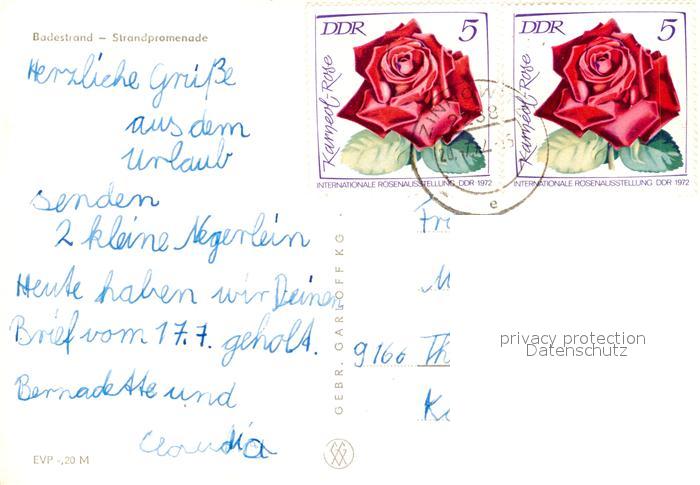 Badestrand – Strandpromenade
Herzliche Grüße
aus dem
Urlaub
senden
2 kleine Negerlein
Heute haben wir Deinen
Brief vom 17.7. geholt.
Bernadette und
Claudia
EVP -,20 M
GEBR. GARLOFF KG
DDR 5
Karneol-Rose
INTERNATIONALE ROSENAUSSTELLUNG DDR 1972
DDR 5
Karneol-Rose
INTERNATIONALE ROSENAUSSTELLUNG DDR 1972
e
Fr
M
9166 Th
K
privacy protection
Datenschutz